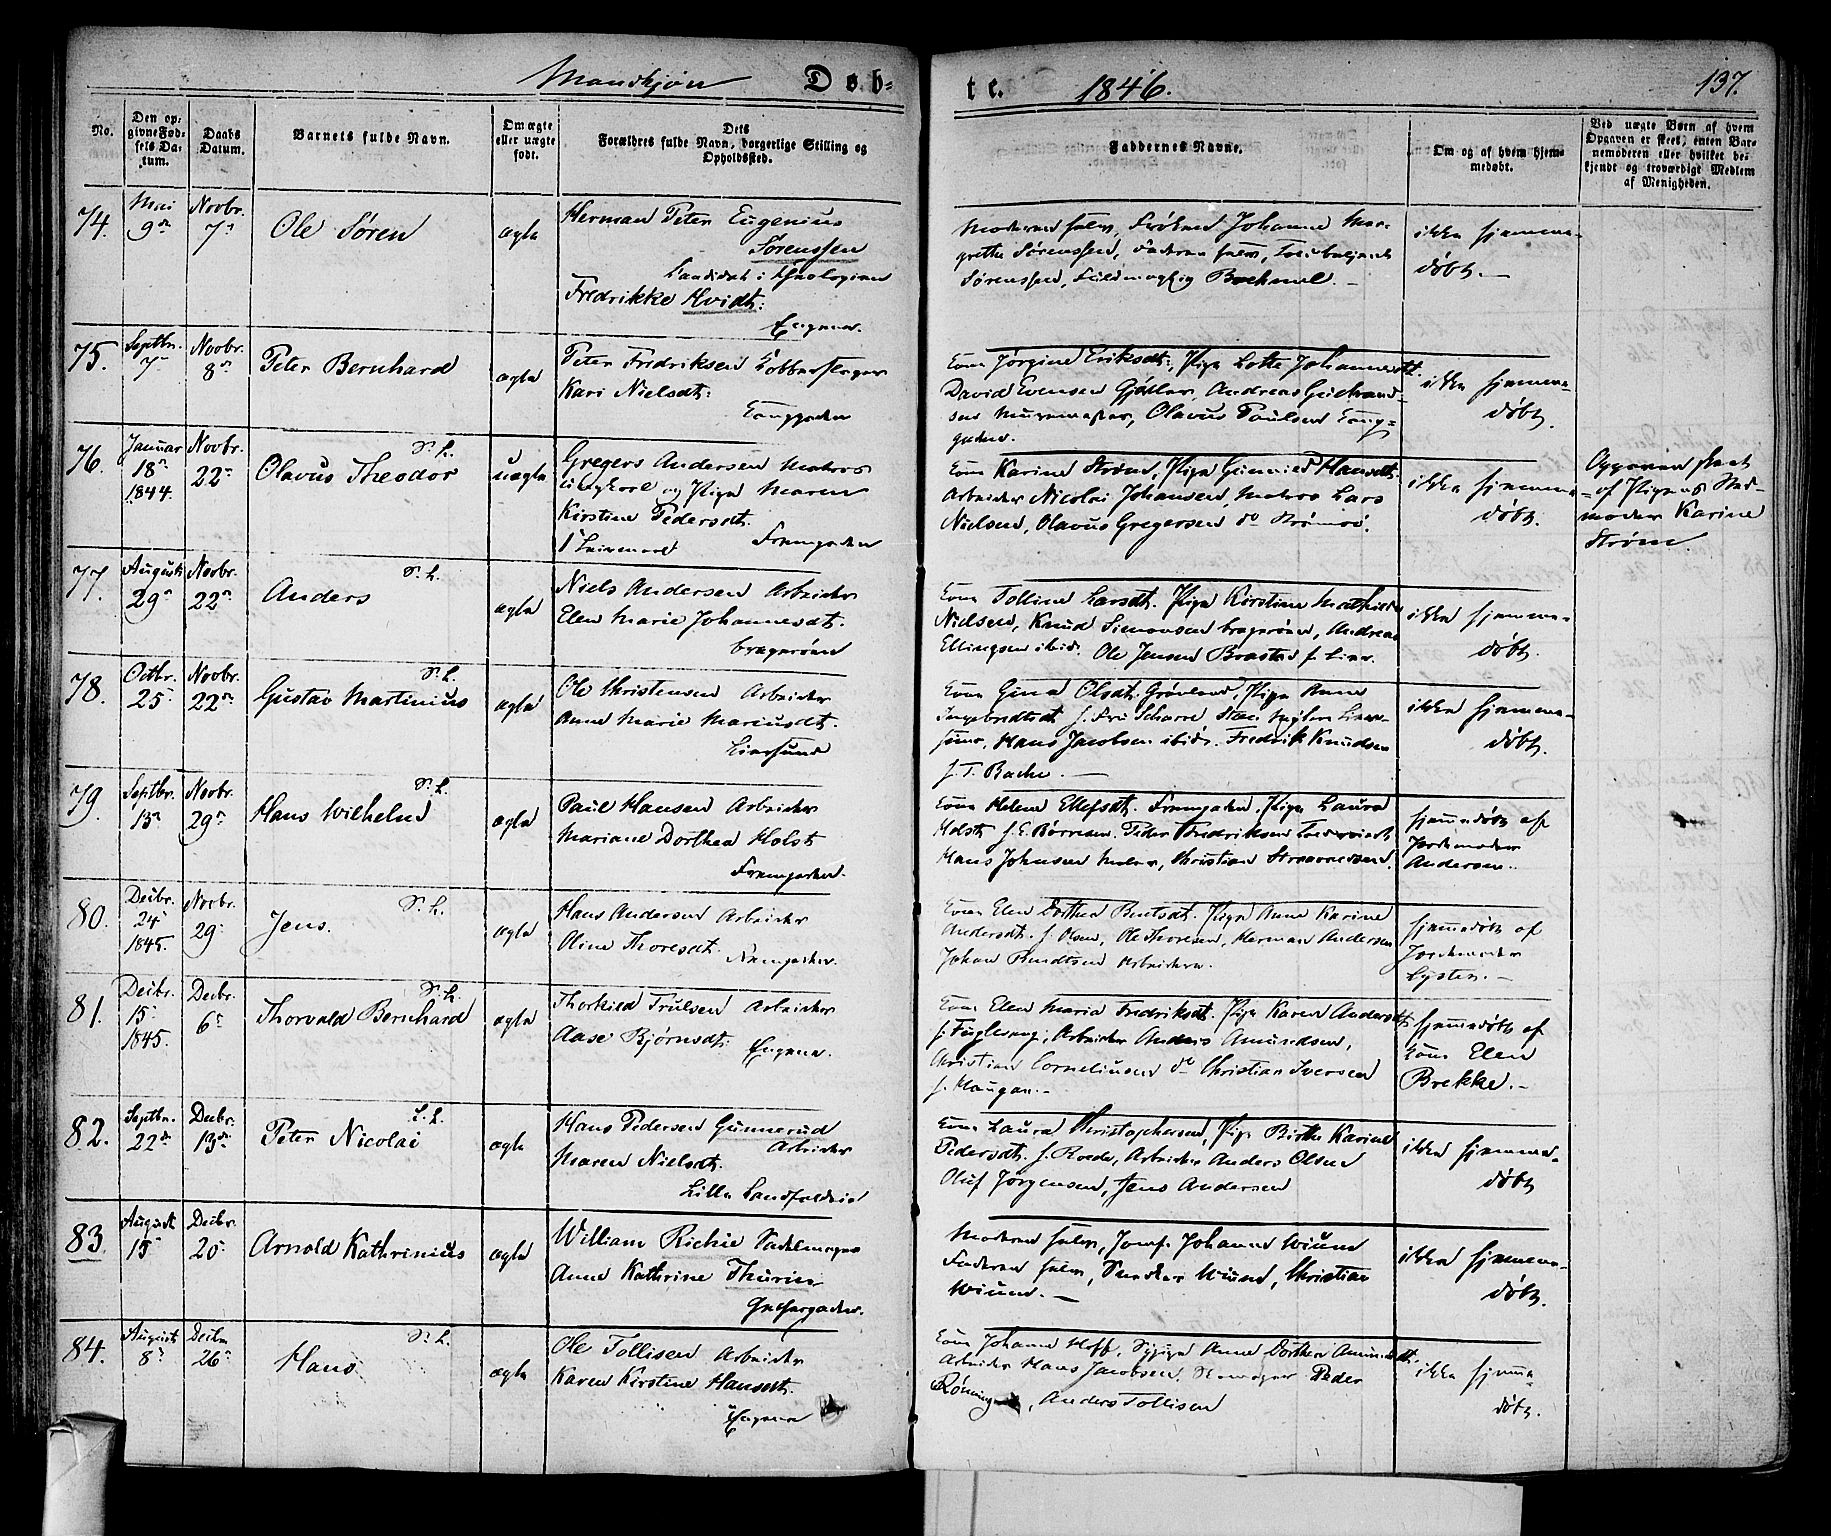 Mandkjøn Døb-
te. 1846. 137.
No.
Den op-
givne Fød-
sels Da-
tum.
Daabs
Datum.
Barnets fulde Navn.
Om ægte
eller uægte
født.
Dets
Forældres fulde Navn, borgerlige Stilling og
Opholdssted.
Faddernes Navne.
Om og af hvem hjem-
medøbt.
Ved uægte Børn af hvem
Opgaven er skeet, enten Bar-
nemoderen eller hvilket be-
kjendt og troværdigt Medlem
af Menigheden.
74. Mai 9de
Novbr. 7de
Ole Søren
ægte
Herman Peter Eugenius
Sørenssen
Candidat i Theologien
Fredrikke Hvidt.
Engene.
Moderen selv, Frøken Johanne Mar-
grethe Sørenssen, Faderen selv,
Sørenssen, Fuldmægtig Boehme.
ikke hjemme-
døbt.
75. Septbr. 7
Novbr. 8de
Peter Bernhard
ægte
Peter Fredriksen Kobberslager
Kari Nielsdt.
Tanggaden
Kone Jørgine Eriksdt., Pige Lotte Johannesdt.
David Evensen Gjørtler, Andreas Gulbrand-
sen Murermester, Olavus Paulsen Tang-
gaden.
ikke hjemme-
døbt.
76. Januar 18de 1844.
Novbr. 22de
Olavus Theodor
uægte
Gregers Andersen Matros
Ungkarl og Pige Maren
Kirstine Pedersdt.
1ste Leiermaal Tramgaden
Kone Karine Strøm, Pige Hansdt.
Arbeider Nicolai Johansen, Matros Lars
Nielsen, Olavus Gregersen do Strømsø.
ikke hjemme-
døbt.
Opgaven skeet
af Pigens Sted-
moder Karine
Strøm.
77. August 29de
Novbr. 22de
Anders
ægte
Niels Andersen Arbeider
Elen Marie Johannesdt.
Bragerøen
Kone Tolline Larsdt. Pige Kirstine Mathea
Nielsen, Knud Simonsen Bragerøen, Andreas
Ellingsen ibid. Ole Jensen Brastad f. Lier.
ikke hjemme-
døbt.
78. Octbr. 25
Novbr. 22de
Gustav Martinius
ægte
Ole Christensen Arbeider
Anne Marie Mariusdt.
Liersund
Kone Gina Olsdt. Grøland, Pige Anne
Ingebredtsdt
Hans Jacobsen ibid. Fredrik Knudsen
f. T. Bache.
ikke hjemme-
døbt.
79. Septbr. 13de
Novbr. 29de
Hans Wilhelm
ægte
Paul Hansen Arbeider
Mariane Dorthea Holst
Tramgaden.
Kone Helene Ellefsdt. Tramgaden, Pige Laura
Holst f. E. Børresen. Peder Fredriksen
Hans Johnsen Maler, Christian
hjemmedøbt af
Jordemoder
Andersen.
80. Decbr. 24 1845.
Novbr. 29
Jens.
ægte
Hans Andersen Arbeider
Oline Thoresdt.
Tramgaden.
Kone Elen Dorthea Bentsdt. Pige Anne Karine
Andersdt. f. Olsen, Ole Thoresen, Herman Andersen
Johan Bendtsen Arbeidere.
hjemmedøbt af
Jordemoder
81. Decbr. 15 1845.
Decbr. 6
Thorvald Bernhard
ægte
Thorkild Trulsen Arbeider
Aase Bjørnsdt. Engene.
Kone Elen Maria Fredriksdt. Pige Karen Andersdt.
Arbeider Anders Amundsen,
Christian Corneliussen do Christian Iversen
f. Haugan.
hjemmedøbt af
Kone Elen
Brekke.
82. Septbr. 22de
Decbr. 13de
Peter Nicolai
ægte
Hans Pedersen Gunnerud
Arbeider
Maren Nielsdt.
Lille Landfaldøie
Kone Laura Christophersen, Pige Birthe Karine
Pedersdt. f. Roede, Arbeider Anders Olsen
Oluf Jørgensen, Jens Andersen
ikke hjemme-
døbt
83. August 15
Decbr. 20
Arnold Kathrinius
ægte
William Richie Sadelmager
Anne Kathrine Thurin
Moderen selv, Jomf. Johanne Wiund
Faderen selv, Snedker Wiund, Christian
Wiund.
ikke hjemme-
døbt.
84. August 8
Decbr. 26
Hans
ægte
Ole Tollisen Arbeider
Karen Kirstine Hansdt.
Engene
Kone Johanne Hoff, Sypige Anne Dorthea Amundsdt.
Arbeider Hans Jacobsen, Peder
Rønning, Anders Tollisen
ikke hjemme-
døbt.